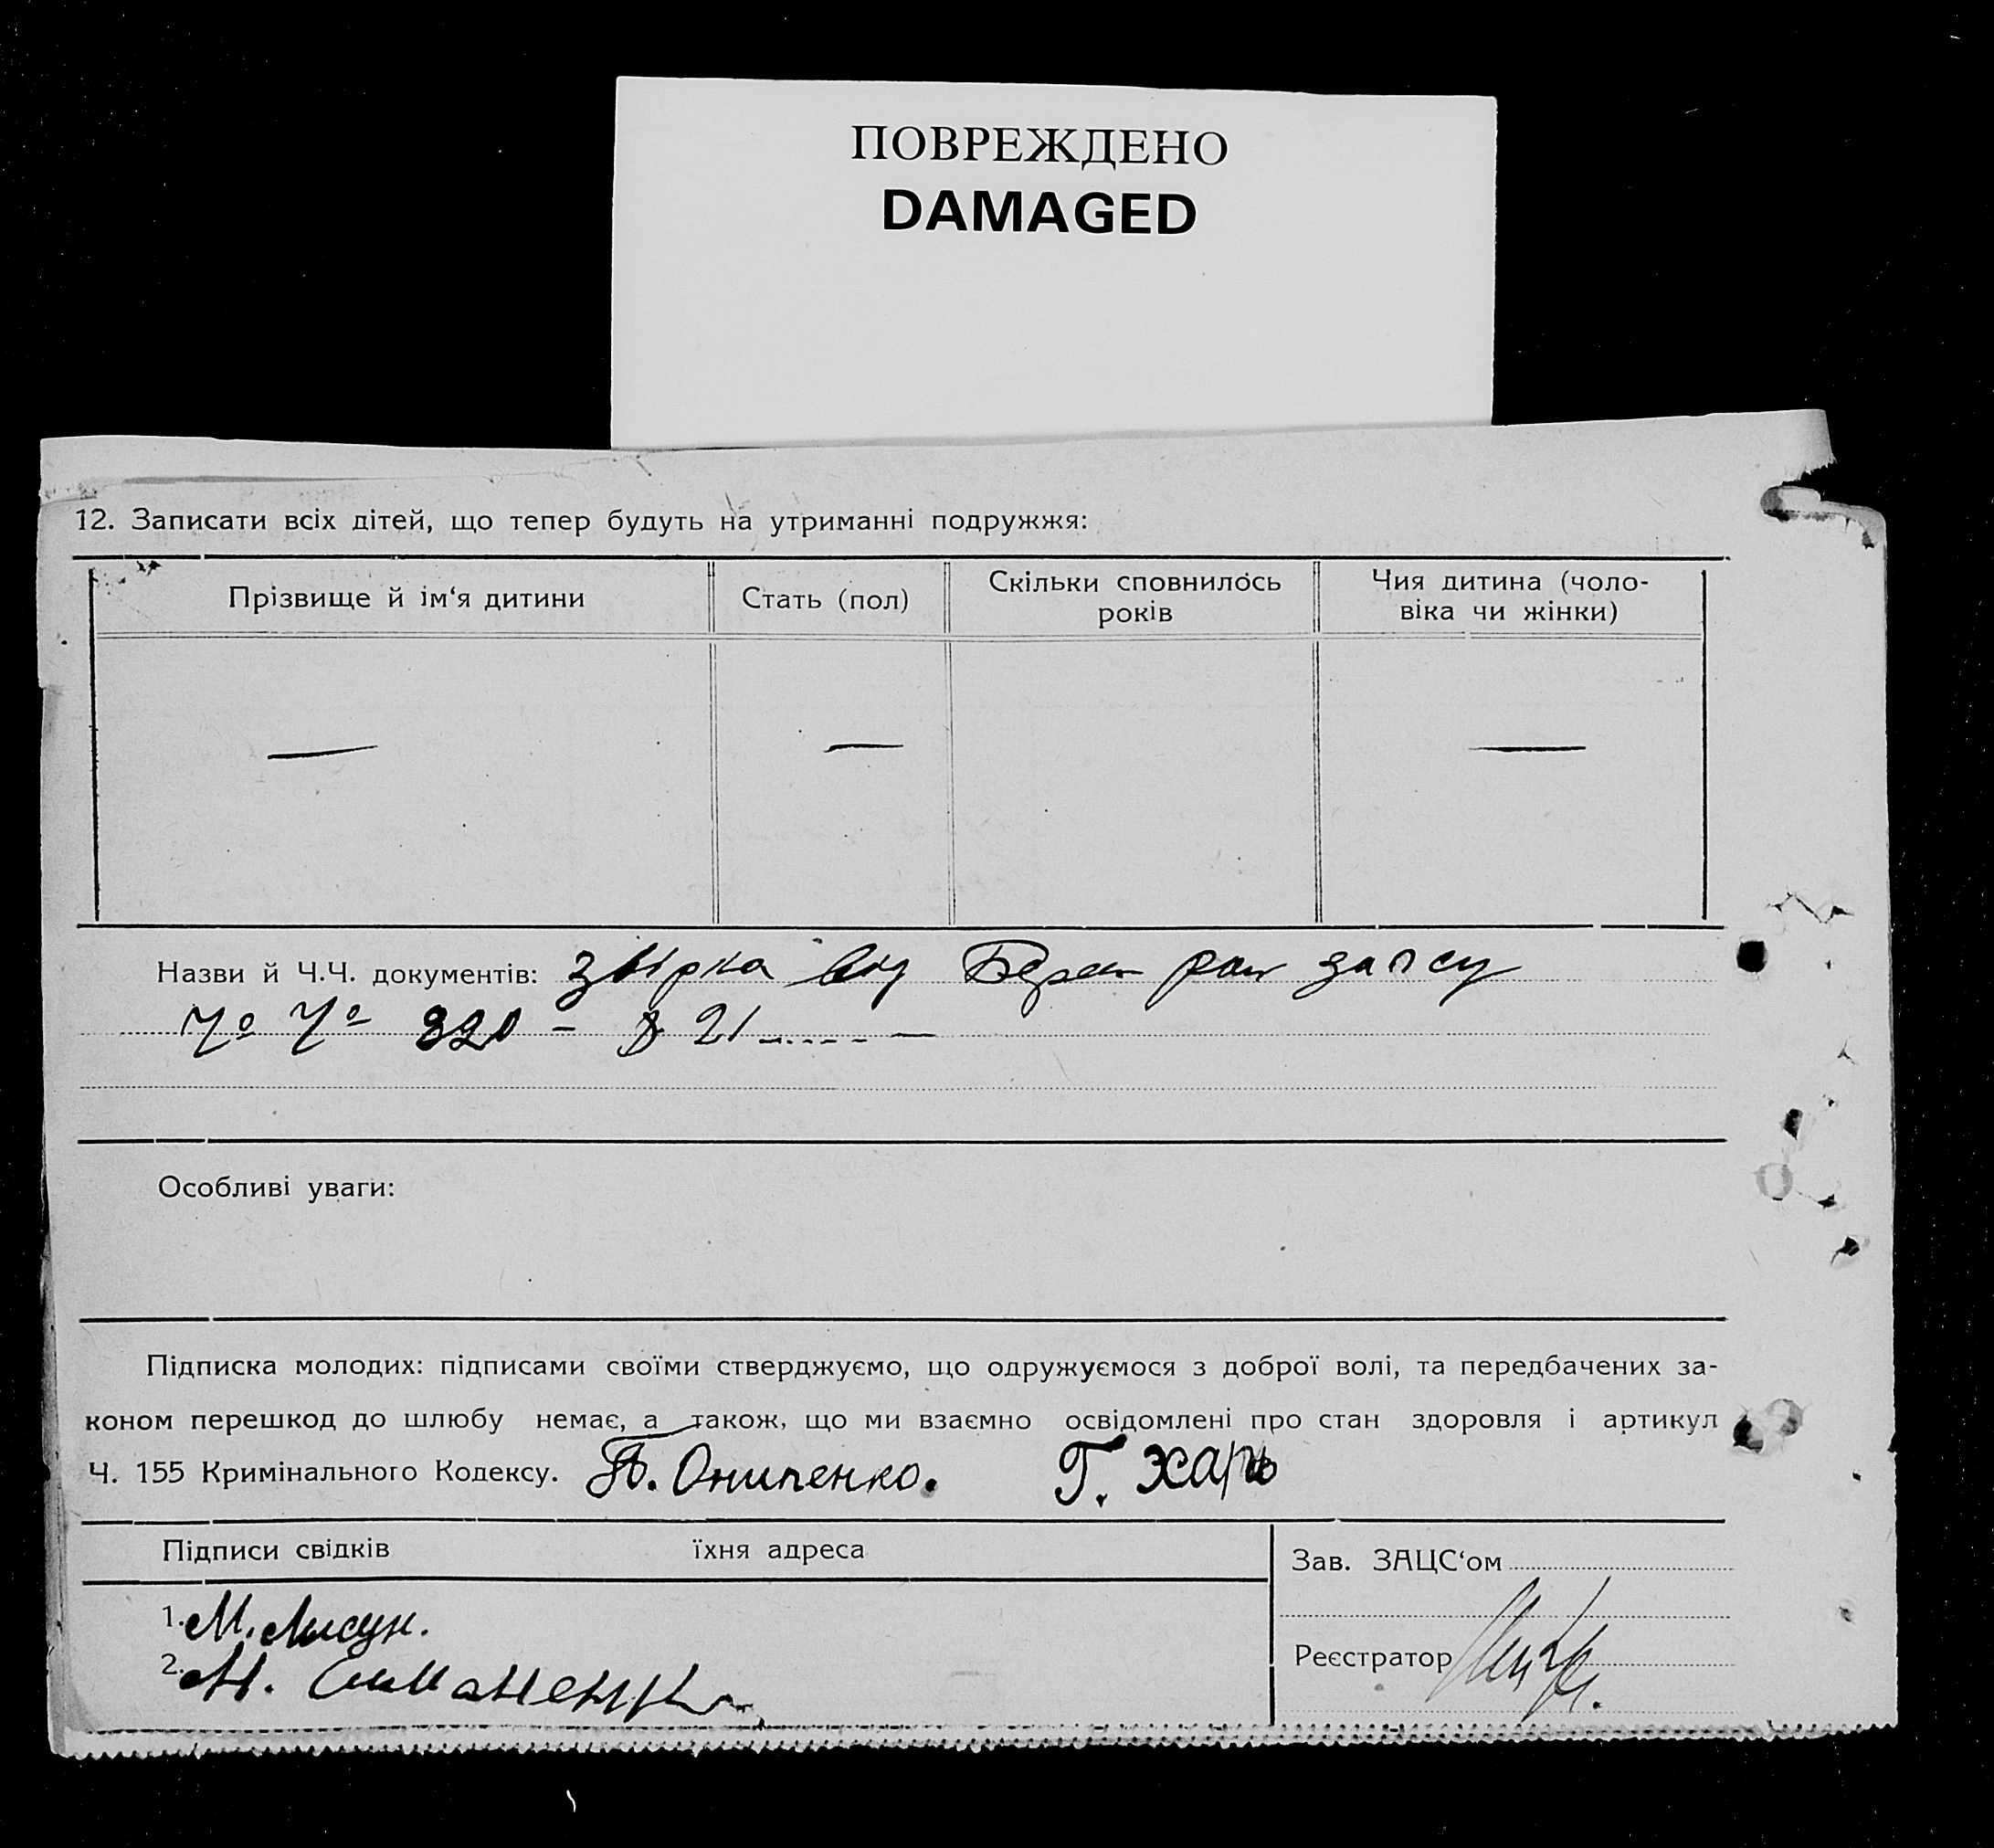 ПОВРЕЖДЕНО
DAMAGED
12. Записати всіх дітей, що тепер будуть на утриманні подружжя:
Прізвище й ім‘я дитини
Стать (пол)
Скільки сповнилось
років
Чия дитина (чоло-
віка чи жінки)
— — —
Назви й Ч.Ч. документів:
Особливі уваги:
Підписка молодих: підписами своїми стверджуємо, що одружуємося з доброї волі, та передбачених за-
коном перешкод до шлюбу немає, а також, що ми взаємно освідомлені про стан здоровля і артикул
Ч. 155 Кримінального Кодексу. П. Онипенко. Г. Харь
Підписи свідків їхня адреса
Зав. ЗАЦС‘ом
1. М. Лисун.
Реєстратор
2. М. Симоненко